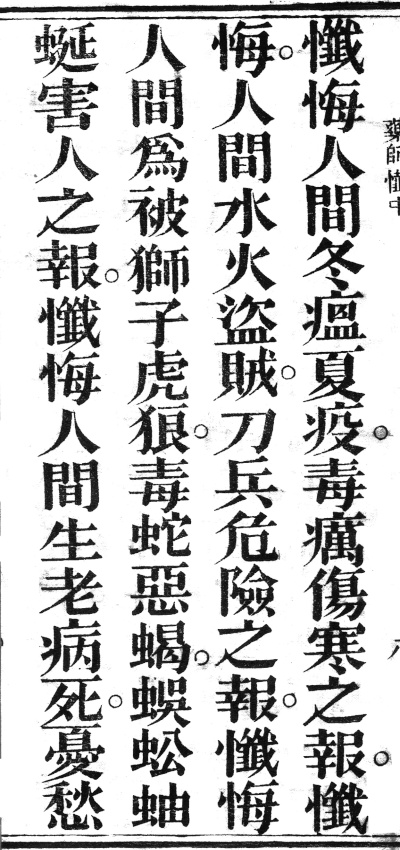 藥師懺中
懺悔人間冬瘟夏疫毒癘傷寒之報懺
悔人間水火盜賊刀兵危險之報懺悔
人間爲被獅子虎狼毒蛇惡蝎蜈蚣蚰
蜒害人之報懺悔人間生老病死憂愁